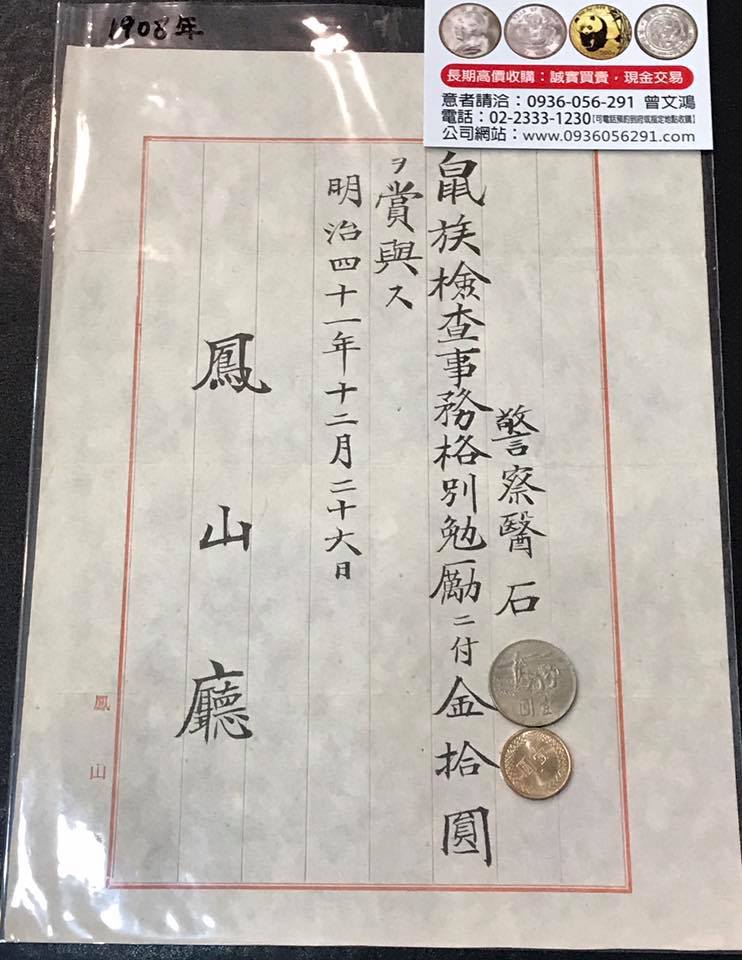 1908年
長期高價收購：誠實買賣，現金交易
意者請洽：0936-056-291 曾文鴻
電話：02-2333-1230【可電話預約到府或指定地點收購】
公司網站：www.0936056291.com
警察醫 石
鼠族檢查事務格別勉勵ニ付金拾圓
ヲ賞與ス
明治四十一年十二月二十六日
鳳山廳
鳳山
壹圓